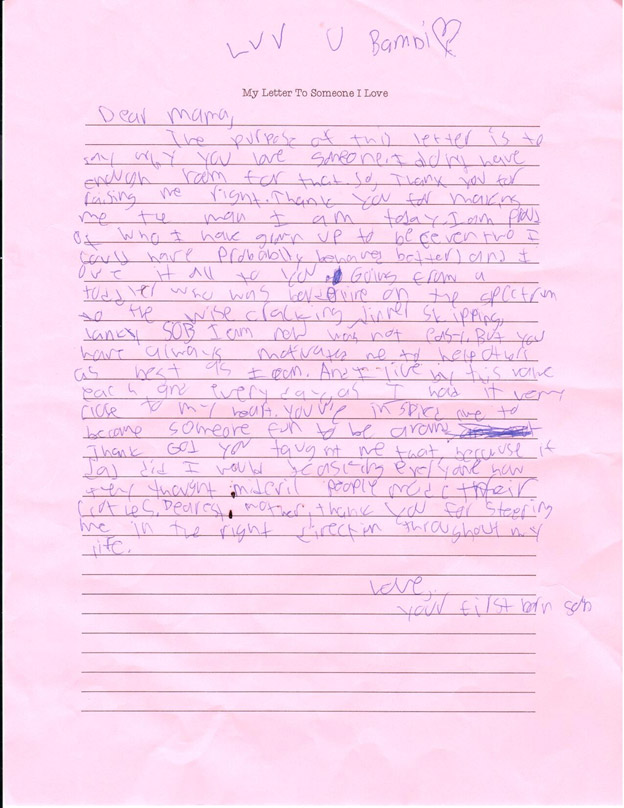 LVV U Bambi
My Letter To Someone I Love
Dear mama,
The purpose of this letter is to
say why you love someone. I didn't have
enough room for that. So, Thank you for
raising me right. Thank you for making
me the man I am today. I am
of who I have grown up to be (even tho I
could have Probablly behaved better) and I
owe it all to you Going from a
toddler who was on the spectrum
to the wise cracking, skipping,
lanky SOB I am now was not easy. But you
have always motivated me to help others
as best as I can. And I live by this value
each and every day, as I hold it very
close to my heart. You've inspired me to
become someone fun to be around
Thank God you taught me that, because if
Dad did I would be asking everyone how
they thought people made their
Dearest mother, thank you for steering
me in the right direction throughout my
life.
Love,
your first born son